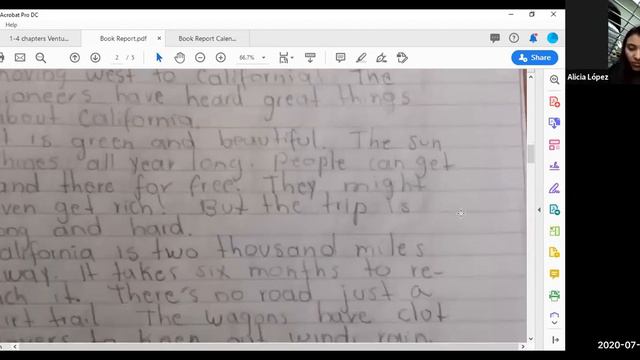 Acrobat Pro DC
Help
1-4 chapters Ventu...
Book Report.pdf
Book Report Calen...
2 / 5
66.7%
Share
Alicia López
moving west to California! The
ioneers have heard great things
about California.
t is green and beautiful. The sun
hines all year long. People can get
and there for free. They might
ven get rich! But the trip is
ong and hard.
alifornia is two thousand miles
way. It takes six months to re-
ach it. There's no road just a
irt trail. The wagons have clot
overs to keep out wind, rain,
2020-07-